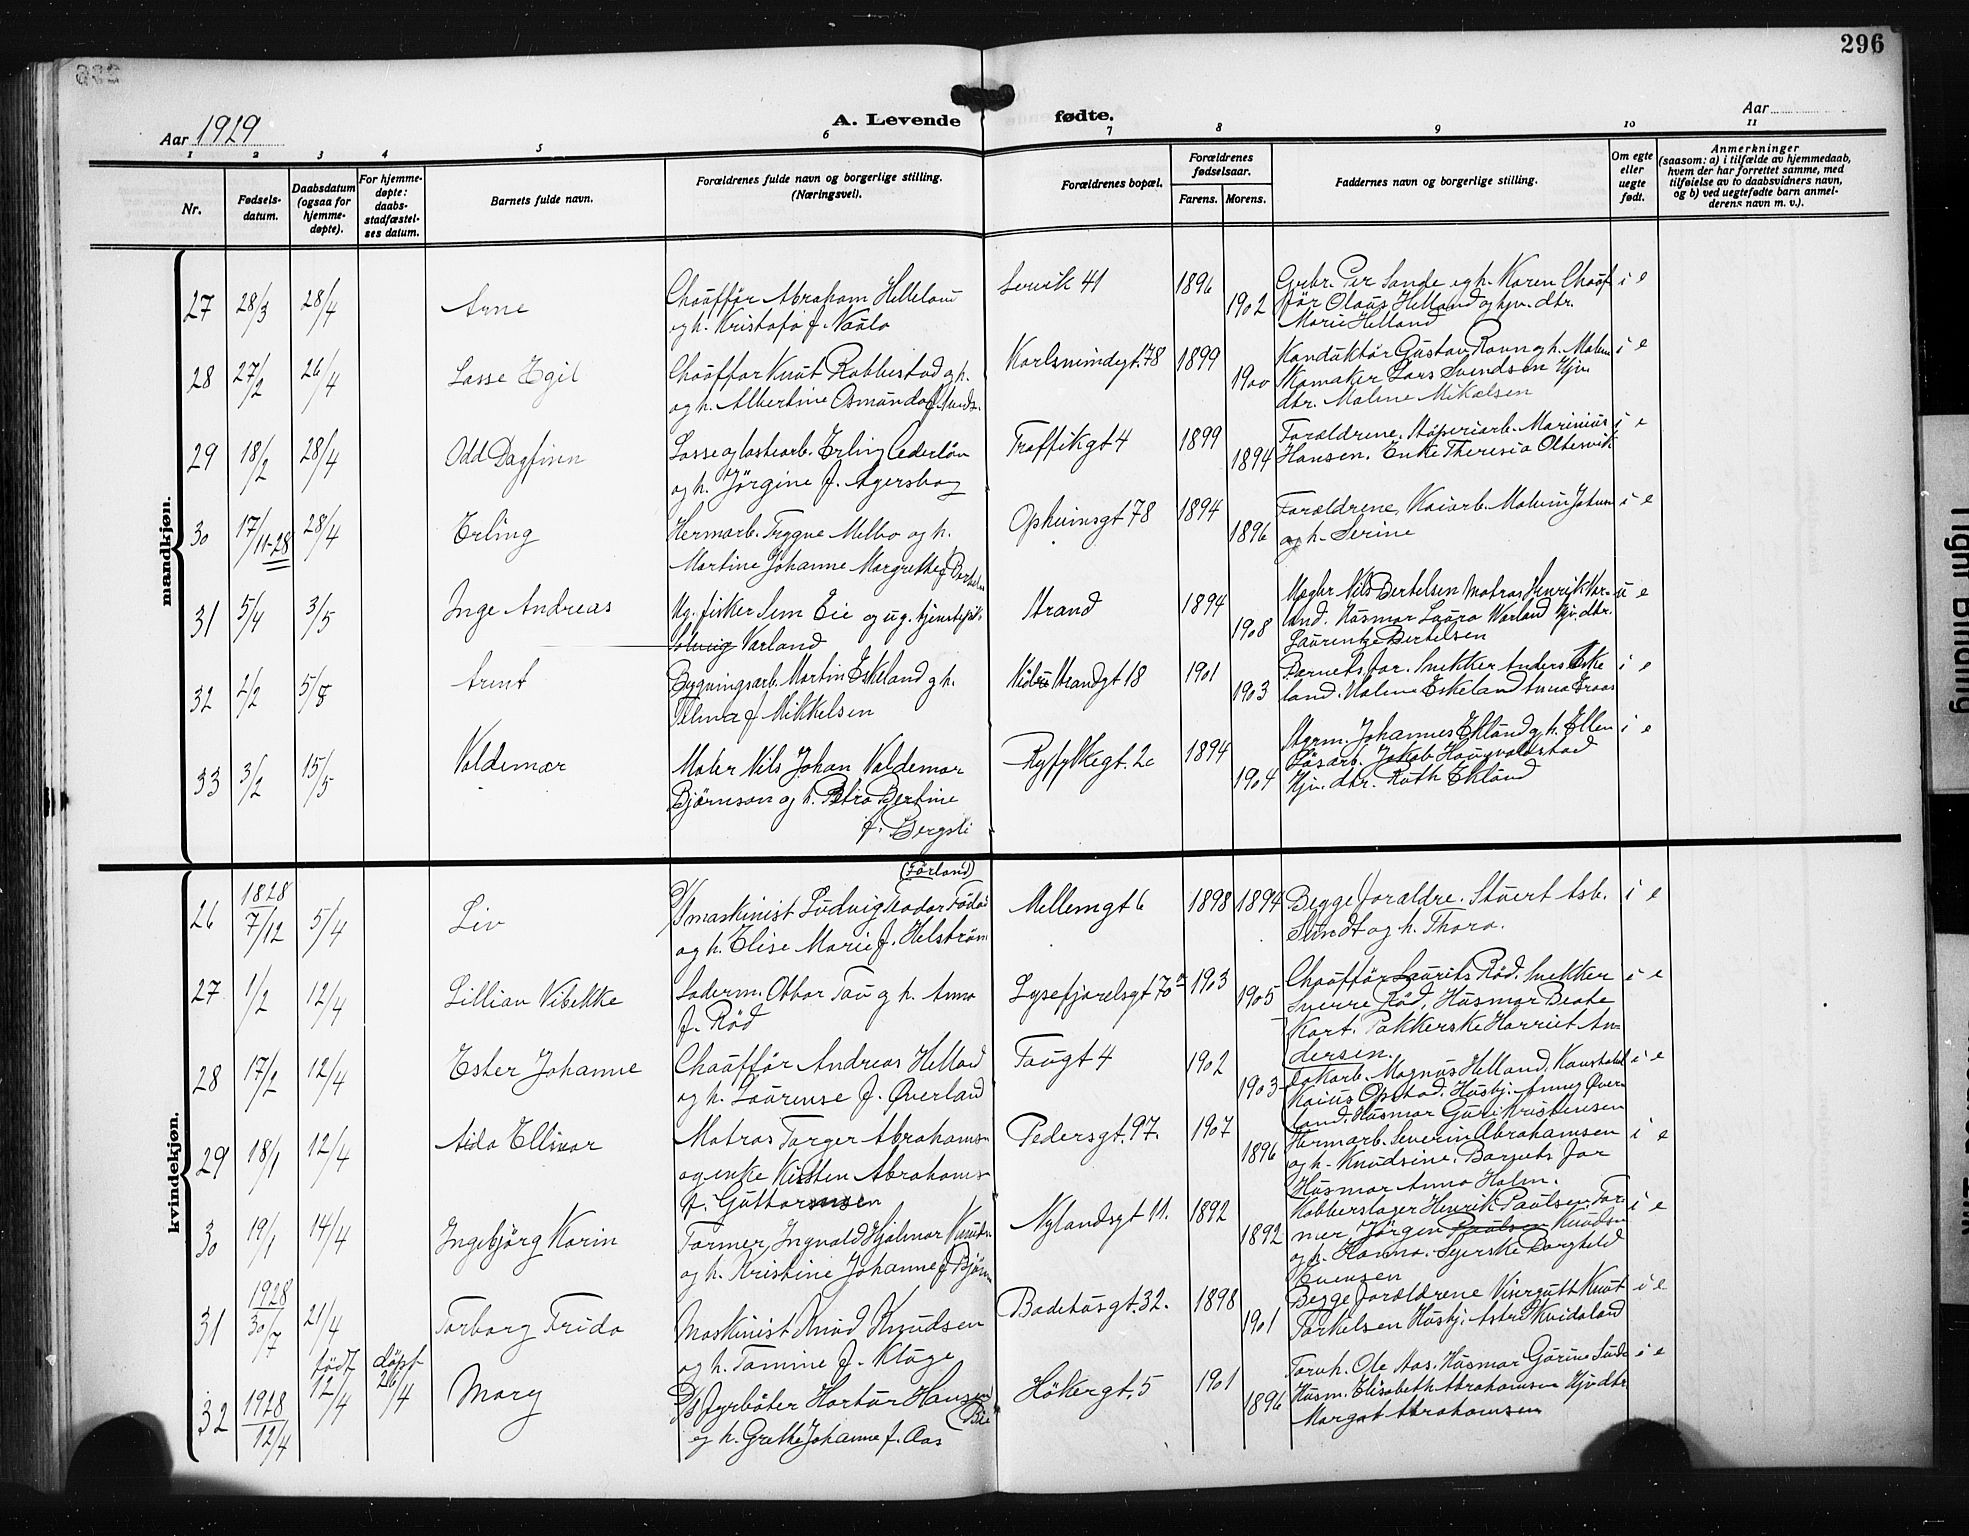 296
Aar 1929
A. Levende fødte.
Aar
1 2 3 4 5 6 7 8 9 10 11
Nr.
Fødsels-
datum.
Daabsdatum
(ogsaa for
hjemme-
døpte).
For hjemme-
døpte:
daabs-
stadfæstel-
ses datum.
Barnets fulde navn.
Forældrenes fulde navn og borgerlige stilling.
(Næringsvei).
Forældrenes bopæl.
Forældrenes
fødselsaar.
Farens. Morens.
Faddernes navn og borgerlige stilling.
Om egte
eller
uegte
født.
Anmerkninger
(saasom: a) i tilfælde av hjemmedaab,
hvem der har forrettet samme, med
tilføielse av to daabsvidners navn,
og b) ved uegtefødte barn anmel-
derens navn m. v.).
mandkjøn.
27 28/3 28/4 Arne
Chauffør Abraham Helleland
og h. Kristofa f. Naalo
Lervik 41 1896 1902
Grbr. Per Sande og h. Karen Chauf
før Olaus Helland og hjv. dtr.
Marie Helland
i e
28 27/2 26/4 Lasse Egil
Chauffør Knut Robbestad og h.
og h. Albertine Osmunda f. Sunds.
Karlsmindegt. 78 1899 1900
Konduktør Gustav Ravn og h. Malene
Skomaker Lars Svendsen Hjv.
dtr. Malene Mikalsen
i e
29 18/2 28/4 Odd Dagfinn
Losse og lastearb. Erling Cederløv
og h. Jørgine f. Agersborg
Traffikgt 4 1899 1894
Forældrene. Støperiarb. Marinius
Hansen. Enke Theresia Oltesvik
i e
30 17/11-28 28/4 Erling
Hermarb. Trygve Melbo og h.
Martine Johanne Margrethe f. Bertelsen
Opheimsgt 78 1894 1896
Forældrene, Kaiarb. Malvin
og h. Serine
i e
31 5/4 3/5 Inge Andreas
Ug. fisker Sem Eie og ug. tjenestepik.
Solveig Varland
Strand 1894 1908
Megler Nils Bertelsen Matros Henrik Var-
land. Husmor Laura Varland Hjv. dtr.
Laurentze Bertelsen
u e
32 2/2 5/8 Arnt
Bygningsarb. Martin Eskeland og h.
Telma f. Mikkelsen
Nedre Strandgt 18 1901 1903
Barnets far. Snekker Anders Eske
land. Malene Eskeland Anna
i e
33 3/2 15/5 Valdemar
Maler Nils Johan Valdemar
Bjørnson og h. Petra Bertine
f. Bergsli
Ryfylkegt. 2c 1894 1904
Styrm. Johannes Eklund og h. Ellen
Løsarb. Jakob Haugvaldstad
Hjv. dtr. Ruth Eklund
i e
kvindekjøn.
26 1828 7/12 5/4 Liv
(Førland)
D/S maskinist Ludvig Teodor
og h. Elise Marie f. Helstrøm
Mellemgt 6 1898 1894
Begge forældre. Stuert Asb.
Sundt og h. Thora.
i e
27 1/2 12/4 Lillian Vibekke
Laderm. Ottar Tau og h. Anna
f. Rød
Lysefjorelsgt 70 a 1903 1905
Chauffør Laurits Rød. Snekker
Sverre Rød, Husmor Beate
Kort. Pakkerske Harriet An
dersen.
i e
28 17/2 12/4 Ester Johanne
Chauffør Andreas Helland
og h. Laurense f. Øverland
Taugt 4 1902 1903
Lokarb. Magnus Helland. Konstabel
Kaius Opstad. Husbj. Anny Øver
land. Husmor Guri Kristensen
i e
29 18/1 12/4 Aida Ellinor
Matros Targer Abrahams-
og enke Kirsten Abrahams-
f. Guttormsen
Pedersgt. 97. 1907 1896
Hermarb. Severin Abrahamsen
og h. Knudsine. Barnets far
Husmor Anna Holm.
i e
30 19/1 14/4 Ingebjörg Karin
Former, Ingvald Hjalmar Knuds.
og h. Kristine Johanne f. Bjørn
Nylandsgt 11. 1892 1892
Kobberslager Henrik Paulsen. For-
mer, Jørgen Paulsen Knudsen
og h. Hanna. Syerske Borghild
Evensen
i e
31 1928 30/7 21/4 Torborg Frida
Maskinist Knud Knudsen
og h. Tomine f. Kluge
Badehusgt. 32. 1898 1901
Begge forældrene Visergutt Knut
Torkelsen Husbj. Astri Kvidaland
i e
32 1928 12/4 født 12/4 døpt 26/4 Mary
D/S fyrbøter Hartur Hansen
(Bie)
og h. Grethe Johanne f. Aas
Høkergt. 5 1901 1896
Forvh. Ole Aas. Husmor Gurine
Husm. Elisabeth Abrahamsen Hjv. dtr.
Margot Abrahamsen
i e